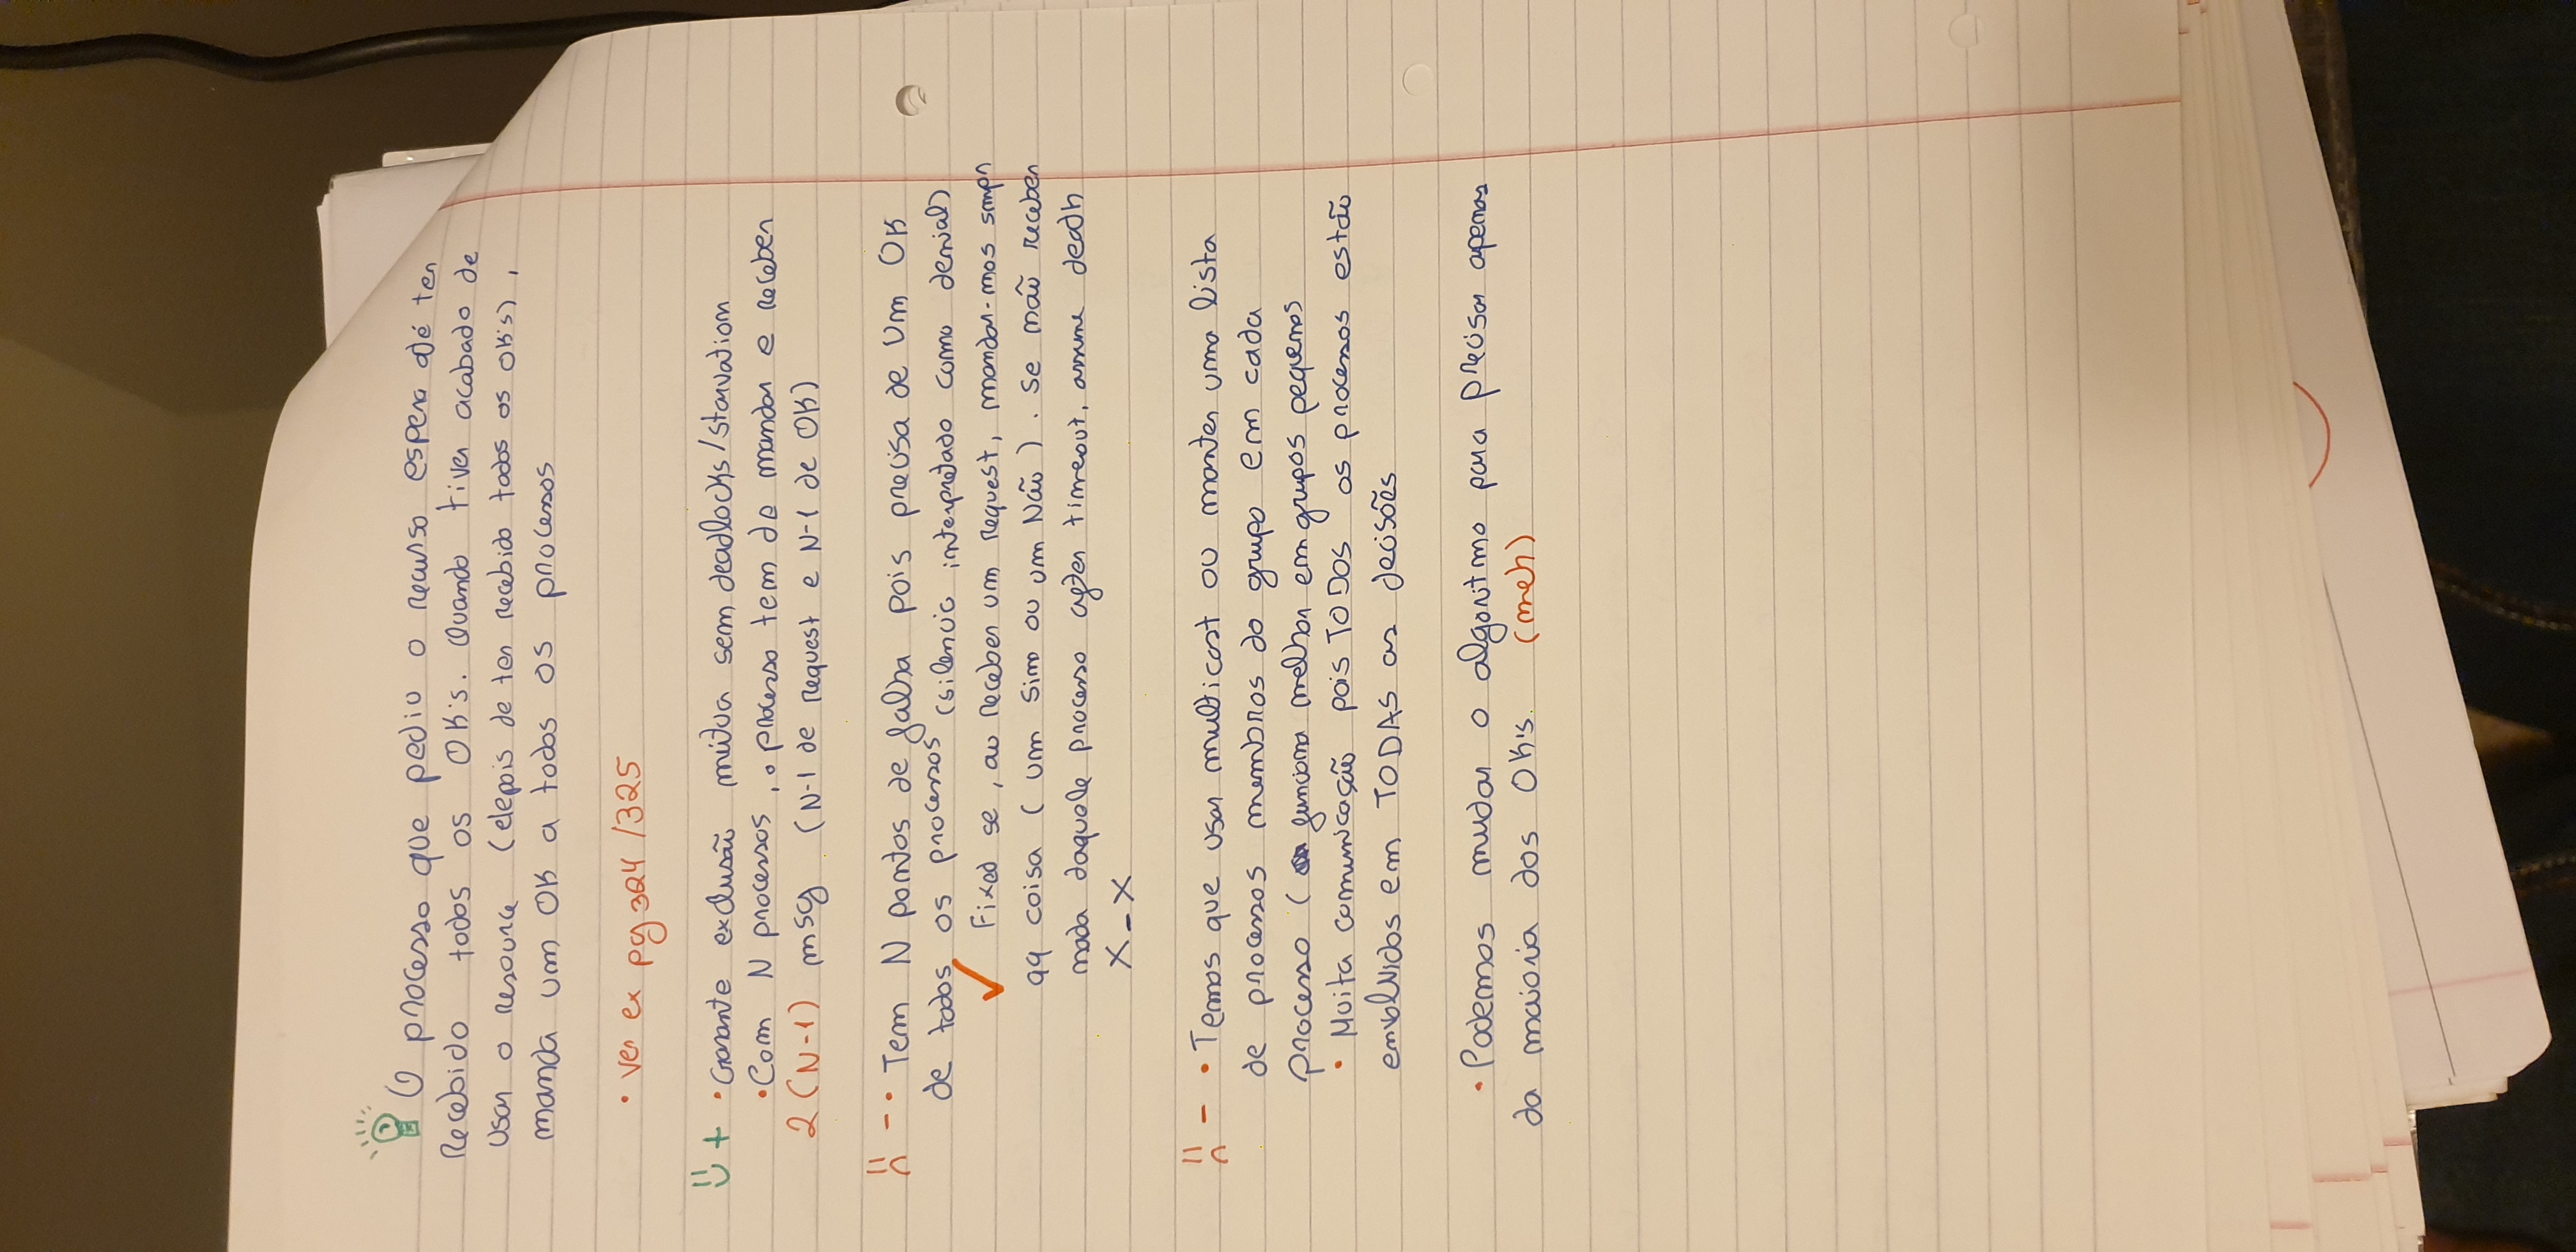 O processo que pediu o recurso espera até ter
Recebido todos os OK's. Quando tiver acabado de
usar o resource (depois de ter recebido todos os OK's),
manda um OK a todos os processos
• ver ex pg 324/325
+ • Garante exclusão mútua sem deadlocks/starvation
• Com N processos, o processo tem de mandar e receber
2(N-1) msg (N-1 de request e N-1 de OK)
- • Tem N pontos de falha pois precisa de um OK
de todos os processos (silencio interpretado como denial)
✓ Fixed se, ao receber um request, mandar-mos smpr
qq coisa (um Sim ou um Não). Se não receber
nada daquele processo after timeout, assume death
X_X
- • Temos que usar multicast ou manter uma lista
de processos membros do grupo em cada
processo ( funciona melhor em grupos pequenos
• Muita comunicação pois TODOS os processos estão
envolvidos em TODAS as decisões
• Podemos mudar o algoritmo para precisar apenas
da maioria dos OK's. (meh)